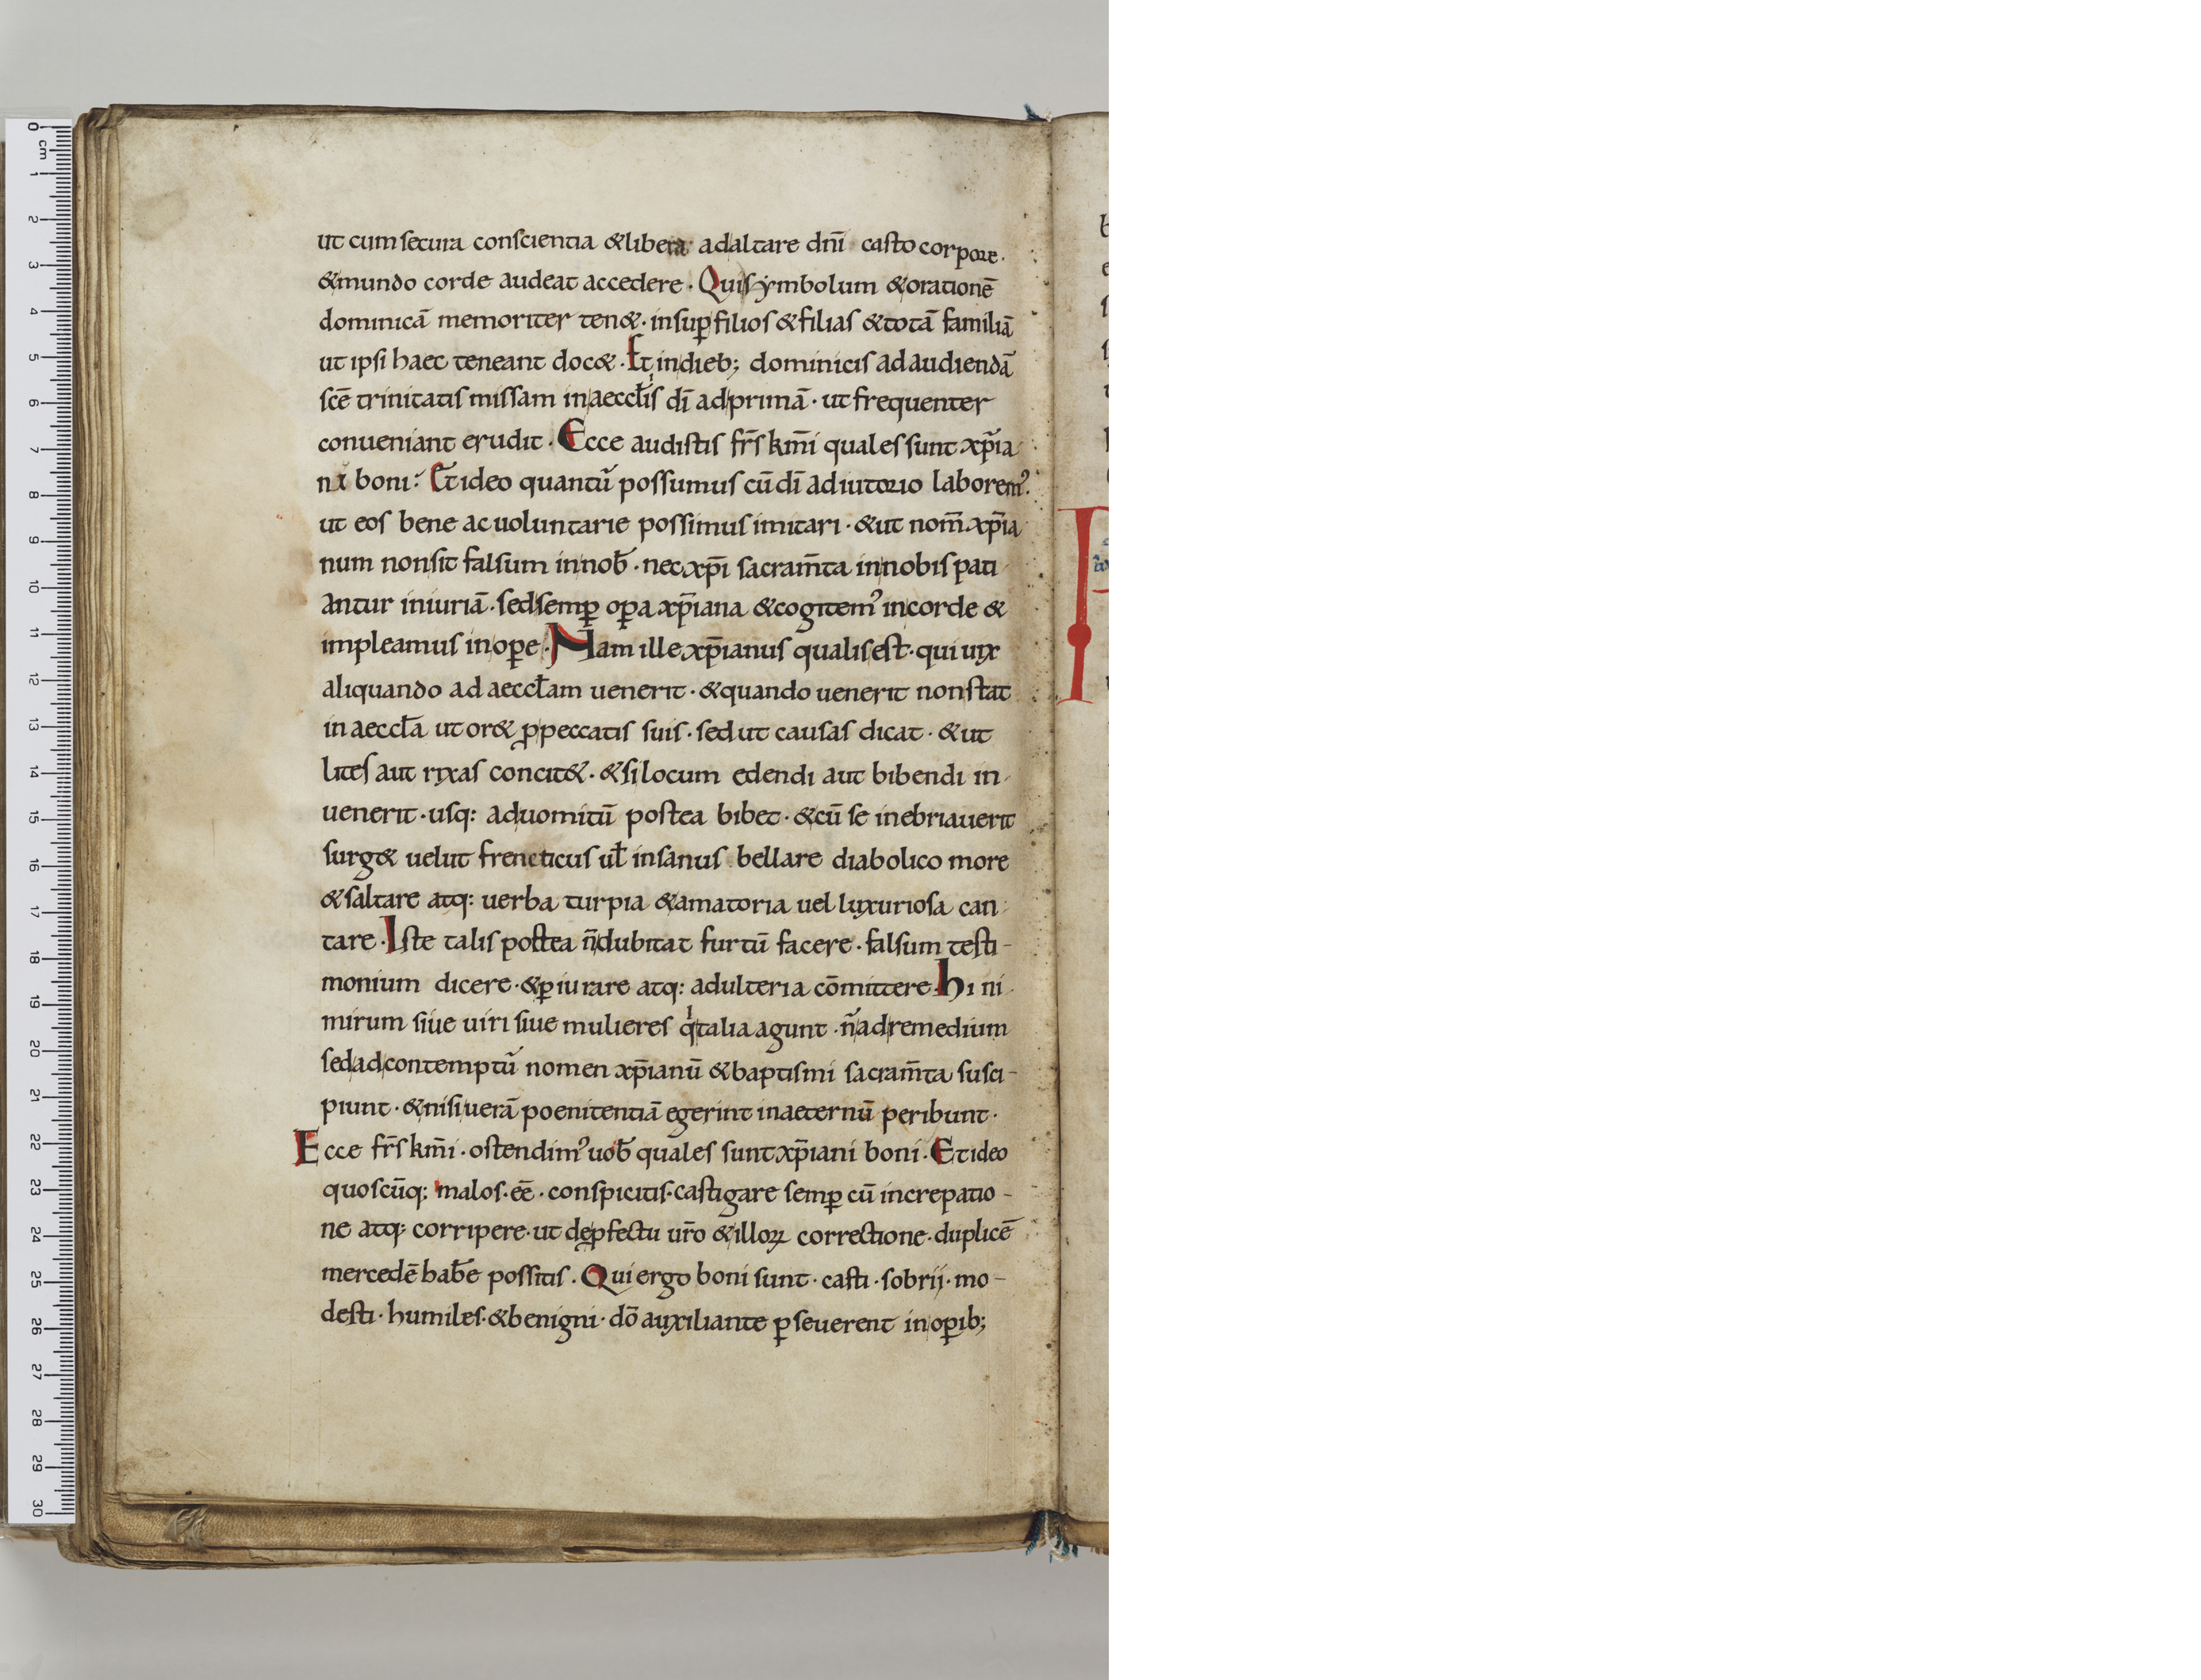 ut cum secura conscientia & libera ad altare dnī casto corpore.
& mundo corde audeat accedere · Qui symbolum & orationē
dominicā memoriter ten& · insuꝑ filios & filias & totā familiā
ut ipsi haec teneant doc& · Et in dieb; dominicis ad audiendā
scē trinitatis missam in aeccl̄iis dī ad primā · ut frequenter
conueniant erudit · Ecce audistis fr̄s km̄i quales sunt xp̄ia
ni boni? Et ideo quantū possumus cū dī adiutorio laborem᾽.
ut eos bene ac uoluntarie possimus imitari · & ut nom̄ xp̄ia
num non sit falsum in nob̄ · nec xp̄i sacram̄ta in nobis pati
antur iniuriā · sed semꝑ oꝑa xp̄iana & cogitem᾽ in corde &
impleamus in oꝑe · Nam ille xp̄ianus qualis est · qui uix
aliquando ad aeccl̄am uenerit · & quando uenerit non stat
in aeccl̄a ut or& ꝓ peccatis suis · sed ut causas dicat · & ut
lites aut rixas concit& · & si locum edendi aut bibendi in-
uenerit · usq: ad uomitū postea bibet · & cū se inebriauerit
surg& uelut freneticus ul̄ insanus bellare diabolico more
& saltare atq: uerba turpia & amatoria uel luxuriosa can-
tare · Iste talis postea n̄ dubitat furtū facere · falsum testi-
monium dicere · & ꝑiurare atq: adulteria cōmittere · hi ni
mirum siue uiri siue mulieres qⁱ talia agunt · n̄ ad remedium
sed ad contemptū nomen xp̄ianū & baptismi sacram̄ta susci-
piunt · & nisi uerā poenitentiā egerint in aeternū peribunt ·
Ecce fr̄s km̄i · ostendim᾽ uob̄ quales sunt xp̄iani boni · Et ideo
quoscūq: malos · eē · conspicitis · castigare semꝑ cū increpatio-
ne atq: corripere · ut de ꝑfectu ur̄o & illoꝝ correctione · duplicē
mercedē hab̄e possitis · Qui ergo boni sunt · casti · sobrij · mo-
desti · humiles · & benigni · dō auxiliante ꝑseuerent in oꝑib;
0
cm
1
2
3
4
5
6
7
8
9
10
11
12
13
14
15
16
17
18
19
20
21
22
23
24
25
26
27
28
29
30